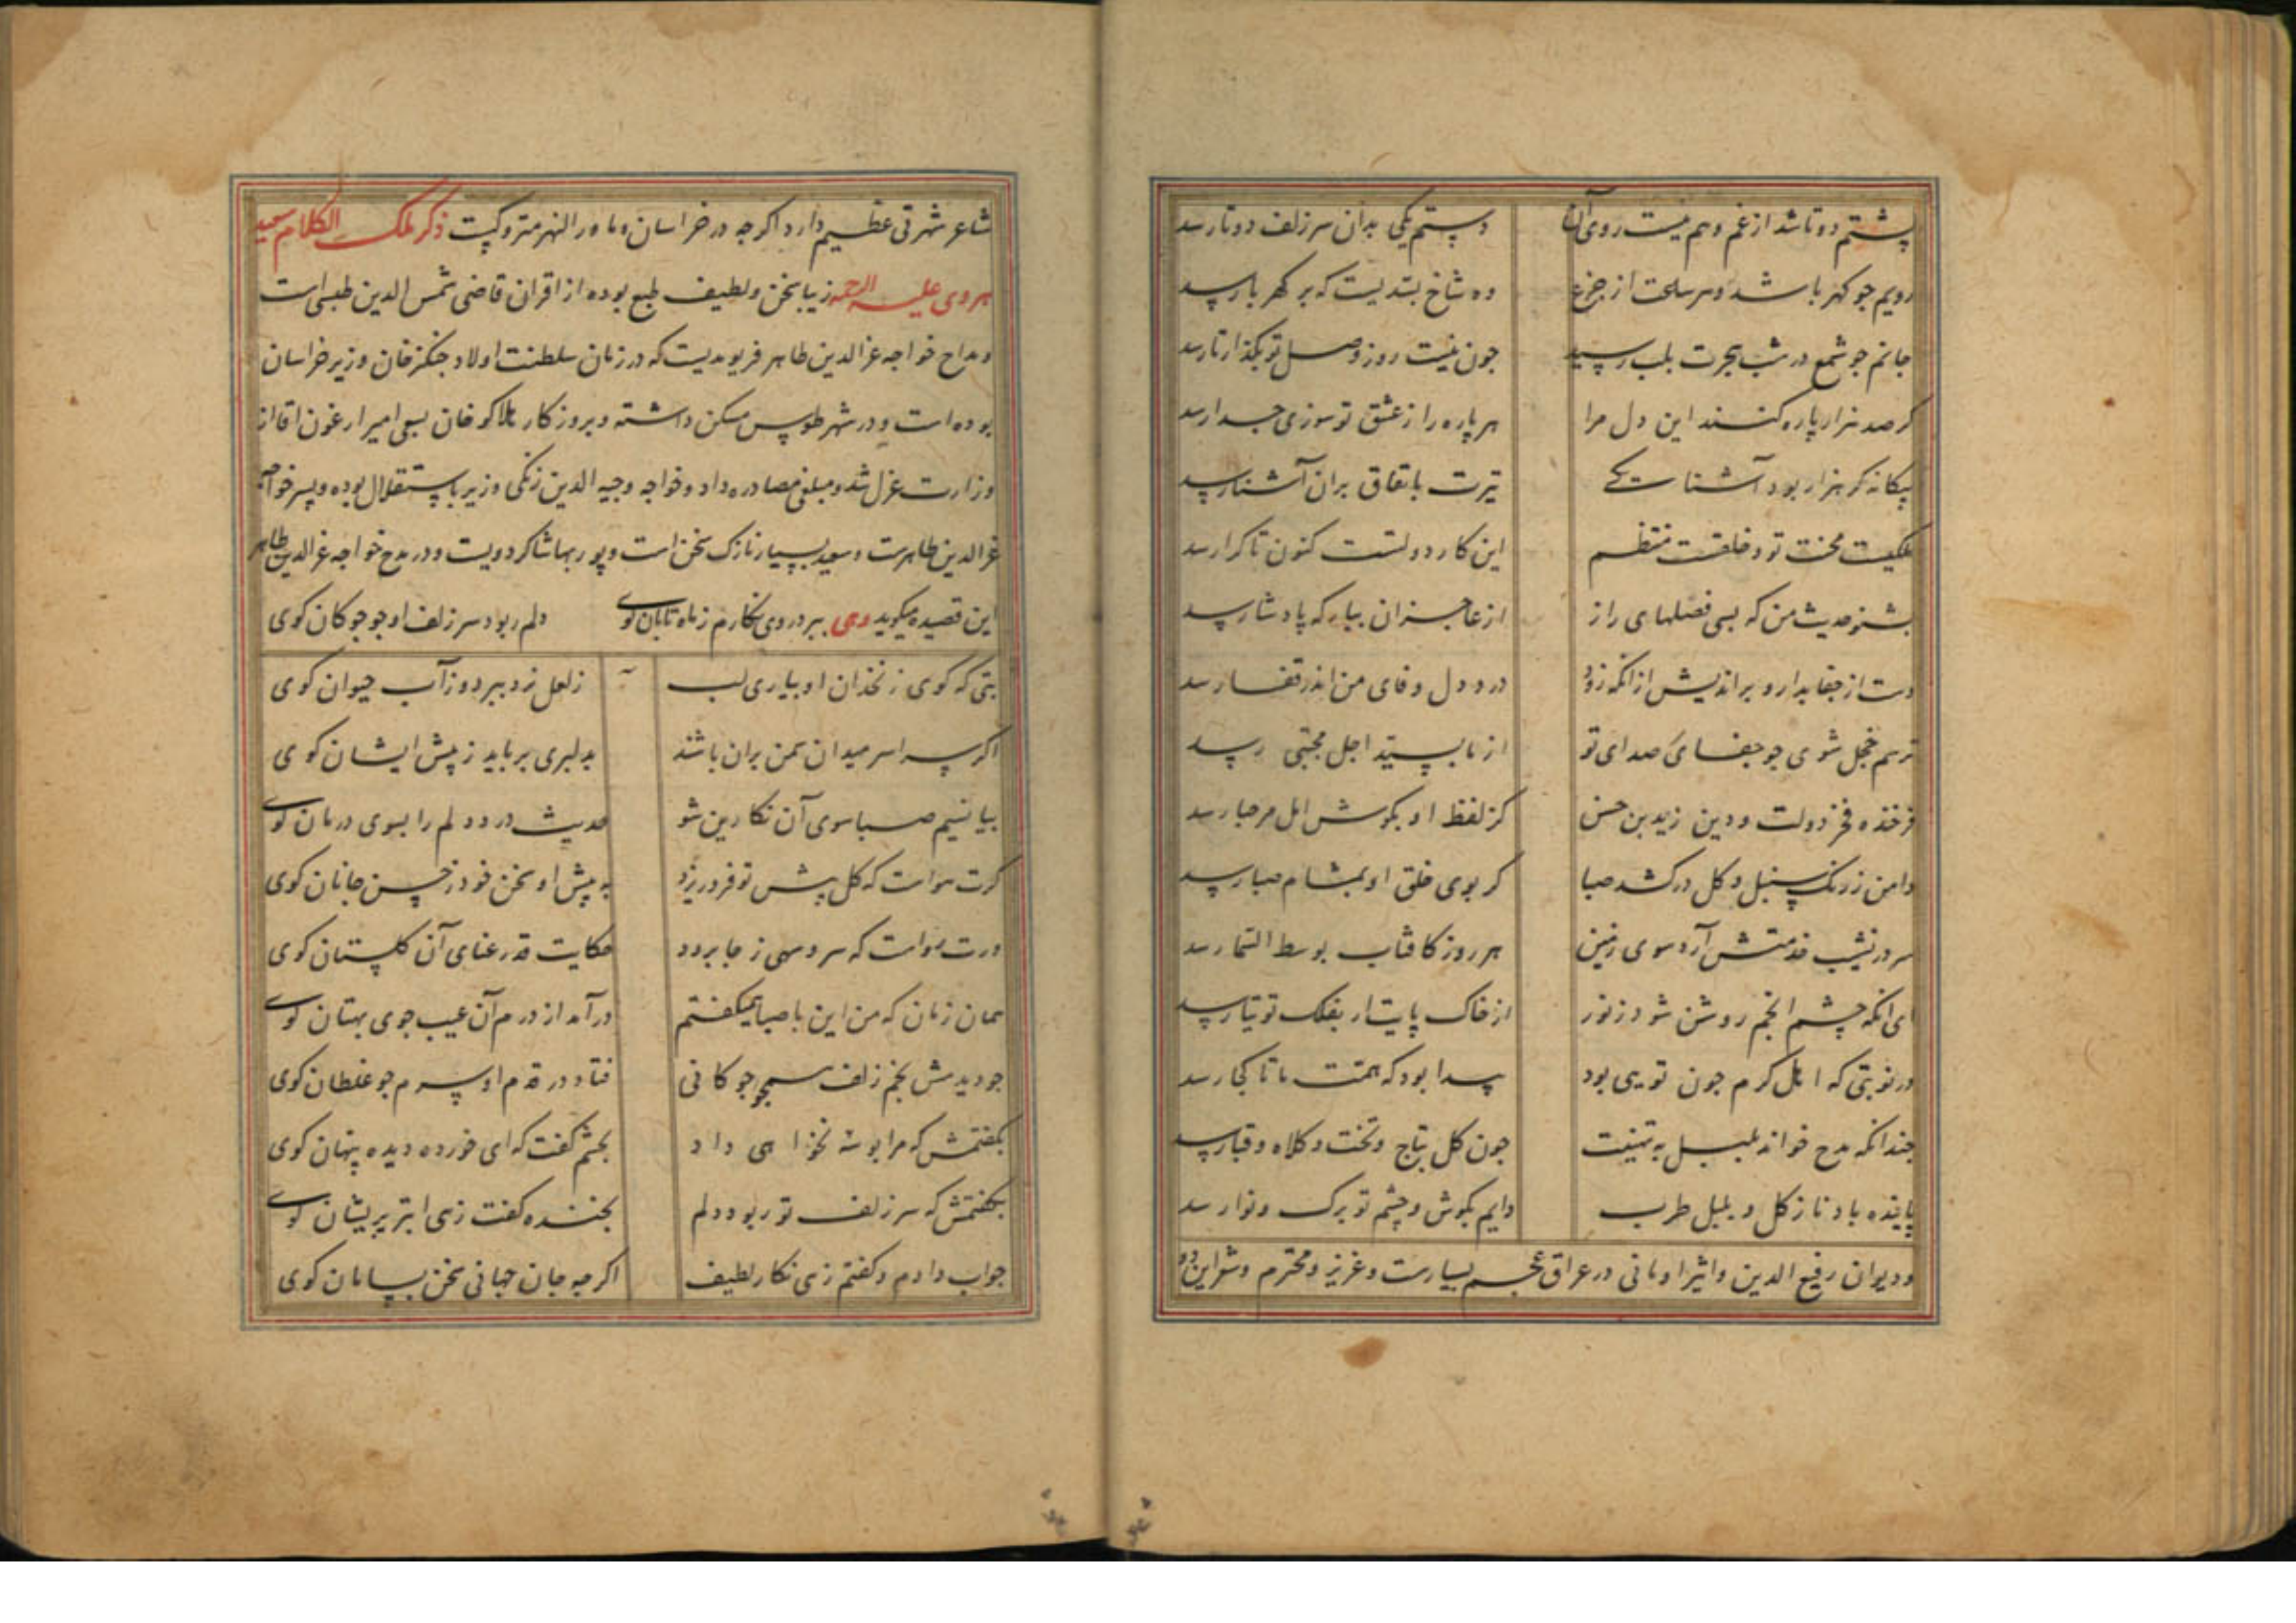 پشتم دو تا شد از غم و هم نیست روی آن دستم یکی بدان سر زلف دو تا رسد
رویم جو کهر با شد و سر سلحت از جزع ده شاخ بسّدیست که بر کهربا رسد
جانم جو شمع در شب هجرت بلب رسید جون نیست روز وصل تو بکذار تا رسد
کر صد هزار پاره کنند این دل مرا هر پاره را ز عشق تو سوزی جدا رسد
بیکانه کر هزار بود آشنا یکی تیرت باتفاق بران آشنا رسد
محنت تو و خلقت منتظم این کار دولتست کنون تا کرا رسد
بشنو حدیث من که بسی فصلهای راز از عاجزان بیار که پادشا رسد
دست از جفا بدار و بر اندیش از انکه زود درد دل وفای من اندر قفا رسد
ترسم خجل شوی جو جفای صدای تو از نا اجل مجتبی رسد
فرخنده فخر دولت و دین زید بن حسن کز لفظ او بکوش امل مرحبا رسد
دامن ز رنک سنبل و کل درکشد صبا کر بوی خلق او بمشام صبا رسد
سر در نشیب خدمتش آرد سوی زمین هر روز کافتاب بوسط السما رسد
ای انکه چشم انجم روشن شود ز نور از خاک پایت ار بفلک توتیا رسد
در نوبتی که اهل کرم جون تویی بود پیدا بود که همت ما تا کجا رسد
چندانکه مدح خواند بلبل به تهنیت جون کل بتاج و تخت و کلاه و قبا رسد
پاینده باد تا ز کل و بلبل طرب دایم بکوش و چشم تو برک و نوا رسد
و دیوان رفیع الدین و اثیر اومانی در عراق عجم بسیارست و عزیز و محترم و شعر این دو
شاعر شهرتی عظیم دارد اکرجه در خراسان و ماورالنهر متروکست ذکر ملک الکلام سعید
هروی علیه الرحمه زیبا سخن و لطیف طبع بوده از اقران قاضی شمس الدین طبسی است
و مداح خواجه عزالدین طاهر فریومدیست که در زمان سلطنت اولاد جنکزخان وزیر خراسان
بوده است و در شهر طوس مسکن داشته و بروزکار هلاکوخان بسعی امیر ارغون اقا از
وزارت عزل شد و مبلغی مصادره داد و خواجه وجیه الدین زنکی وزیر باستقلال بوده و پسر خواجه
عزالدین طاهرست و سعید بسیار نازک سخن است و پوربها شاکرد ویست و در مدح خواجه عزالدین طاهر
این قصیده میکوید وهی ببرد روی نکارم ز ماه تابان کوی دلم ربود سر زلف او جو جوکان کوی
بتی که کوی زنخدان او بیاری لب ز لعل برد ببرد و ز آب حیوان کوی
اکر سراسر میدان سمن بران باشند بدلبری برباید ز پیش ایشان کوی
بیا نسیم صبا سوی آن نکارین شو حدیث درد دلم را بسوی درمان کوی
کرت هواست که کل پیش تو فرو ریزد به پیش او سخن خود ز حسن جانان کوی
ورت هواست که سرو سهی ز جا برود حکایت قد رعنای آن کلستان کوی
همان زمان که من این با صبا همیکفتم درآمد از درم آن عیب جوی بهتان کوی
جو دیدمش بخم زلف همجو جوکانی فتاد در قدم او سرم جو غلطان کوی
بکفتمش که مرا بوسه نخواهی داد بچشم کفت که ای خورده دیده پنهان کوی
بکفتمش که سر زلف تو ربود دلم بخنده کفت زهی ابتر پریشان کوی
جواب دادم و کفتم زهی نکار لطیف اکرجه جان جهانی سخن بسامان کوی